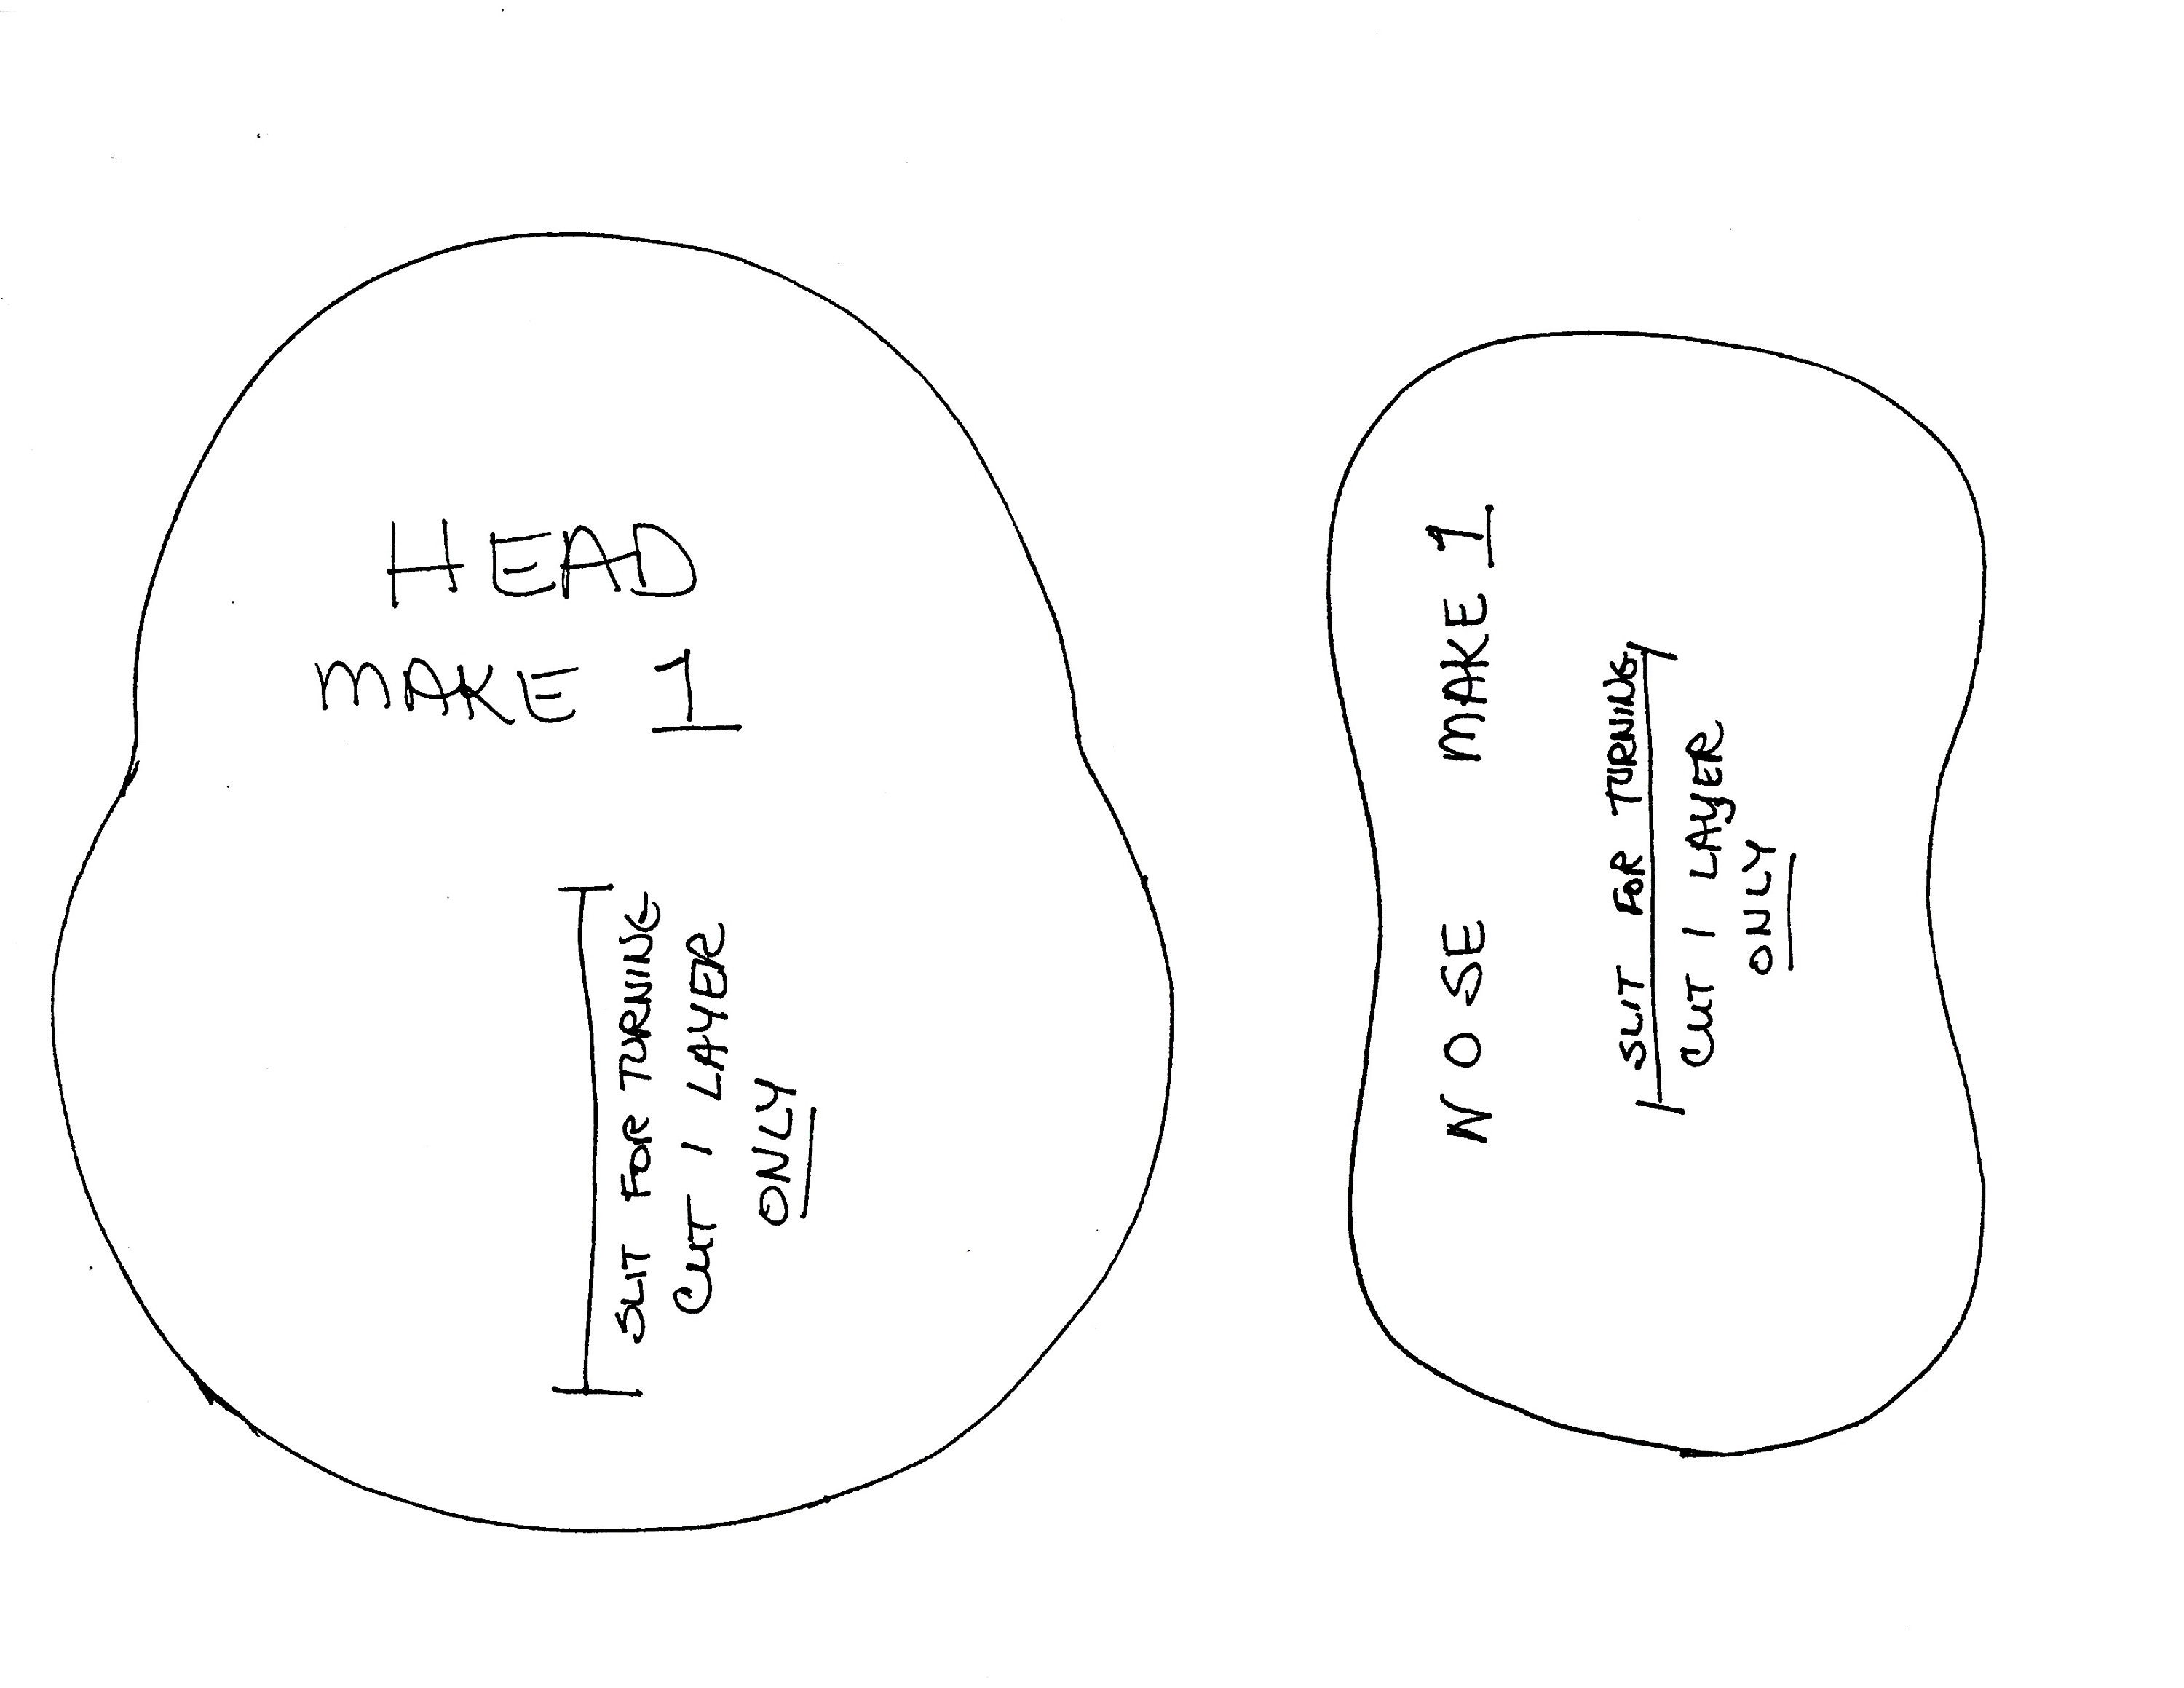 HEAD
MAKE 1
SLIT FOR TURNING
CUT 1 LAYER
ONLY
NOSE MAKE 1
SLIT FOR TURNING
CUT 1 LAYER
ONLY